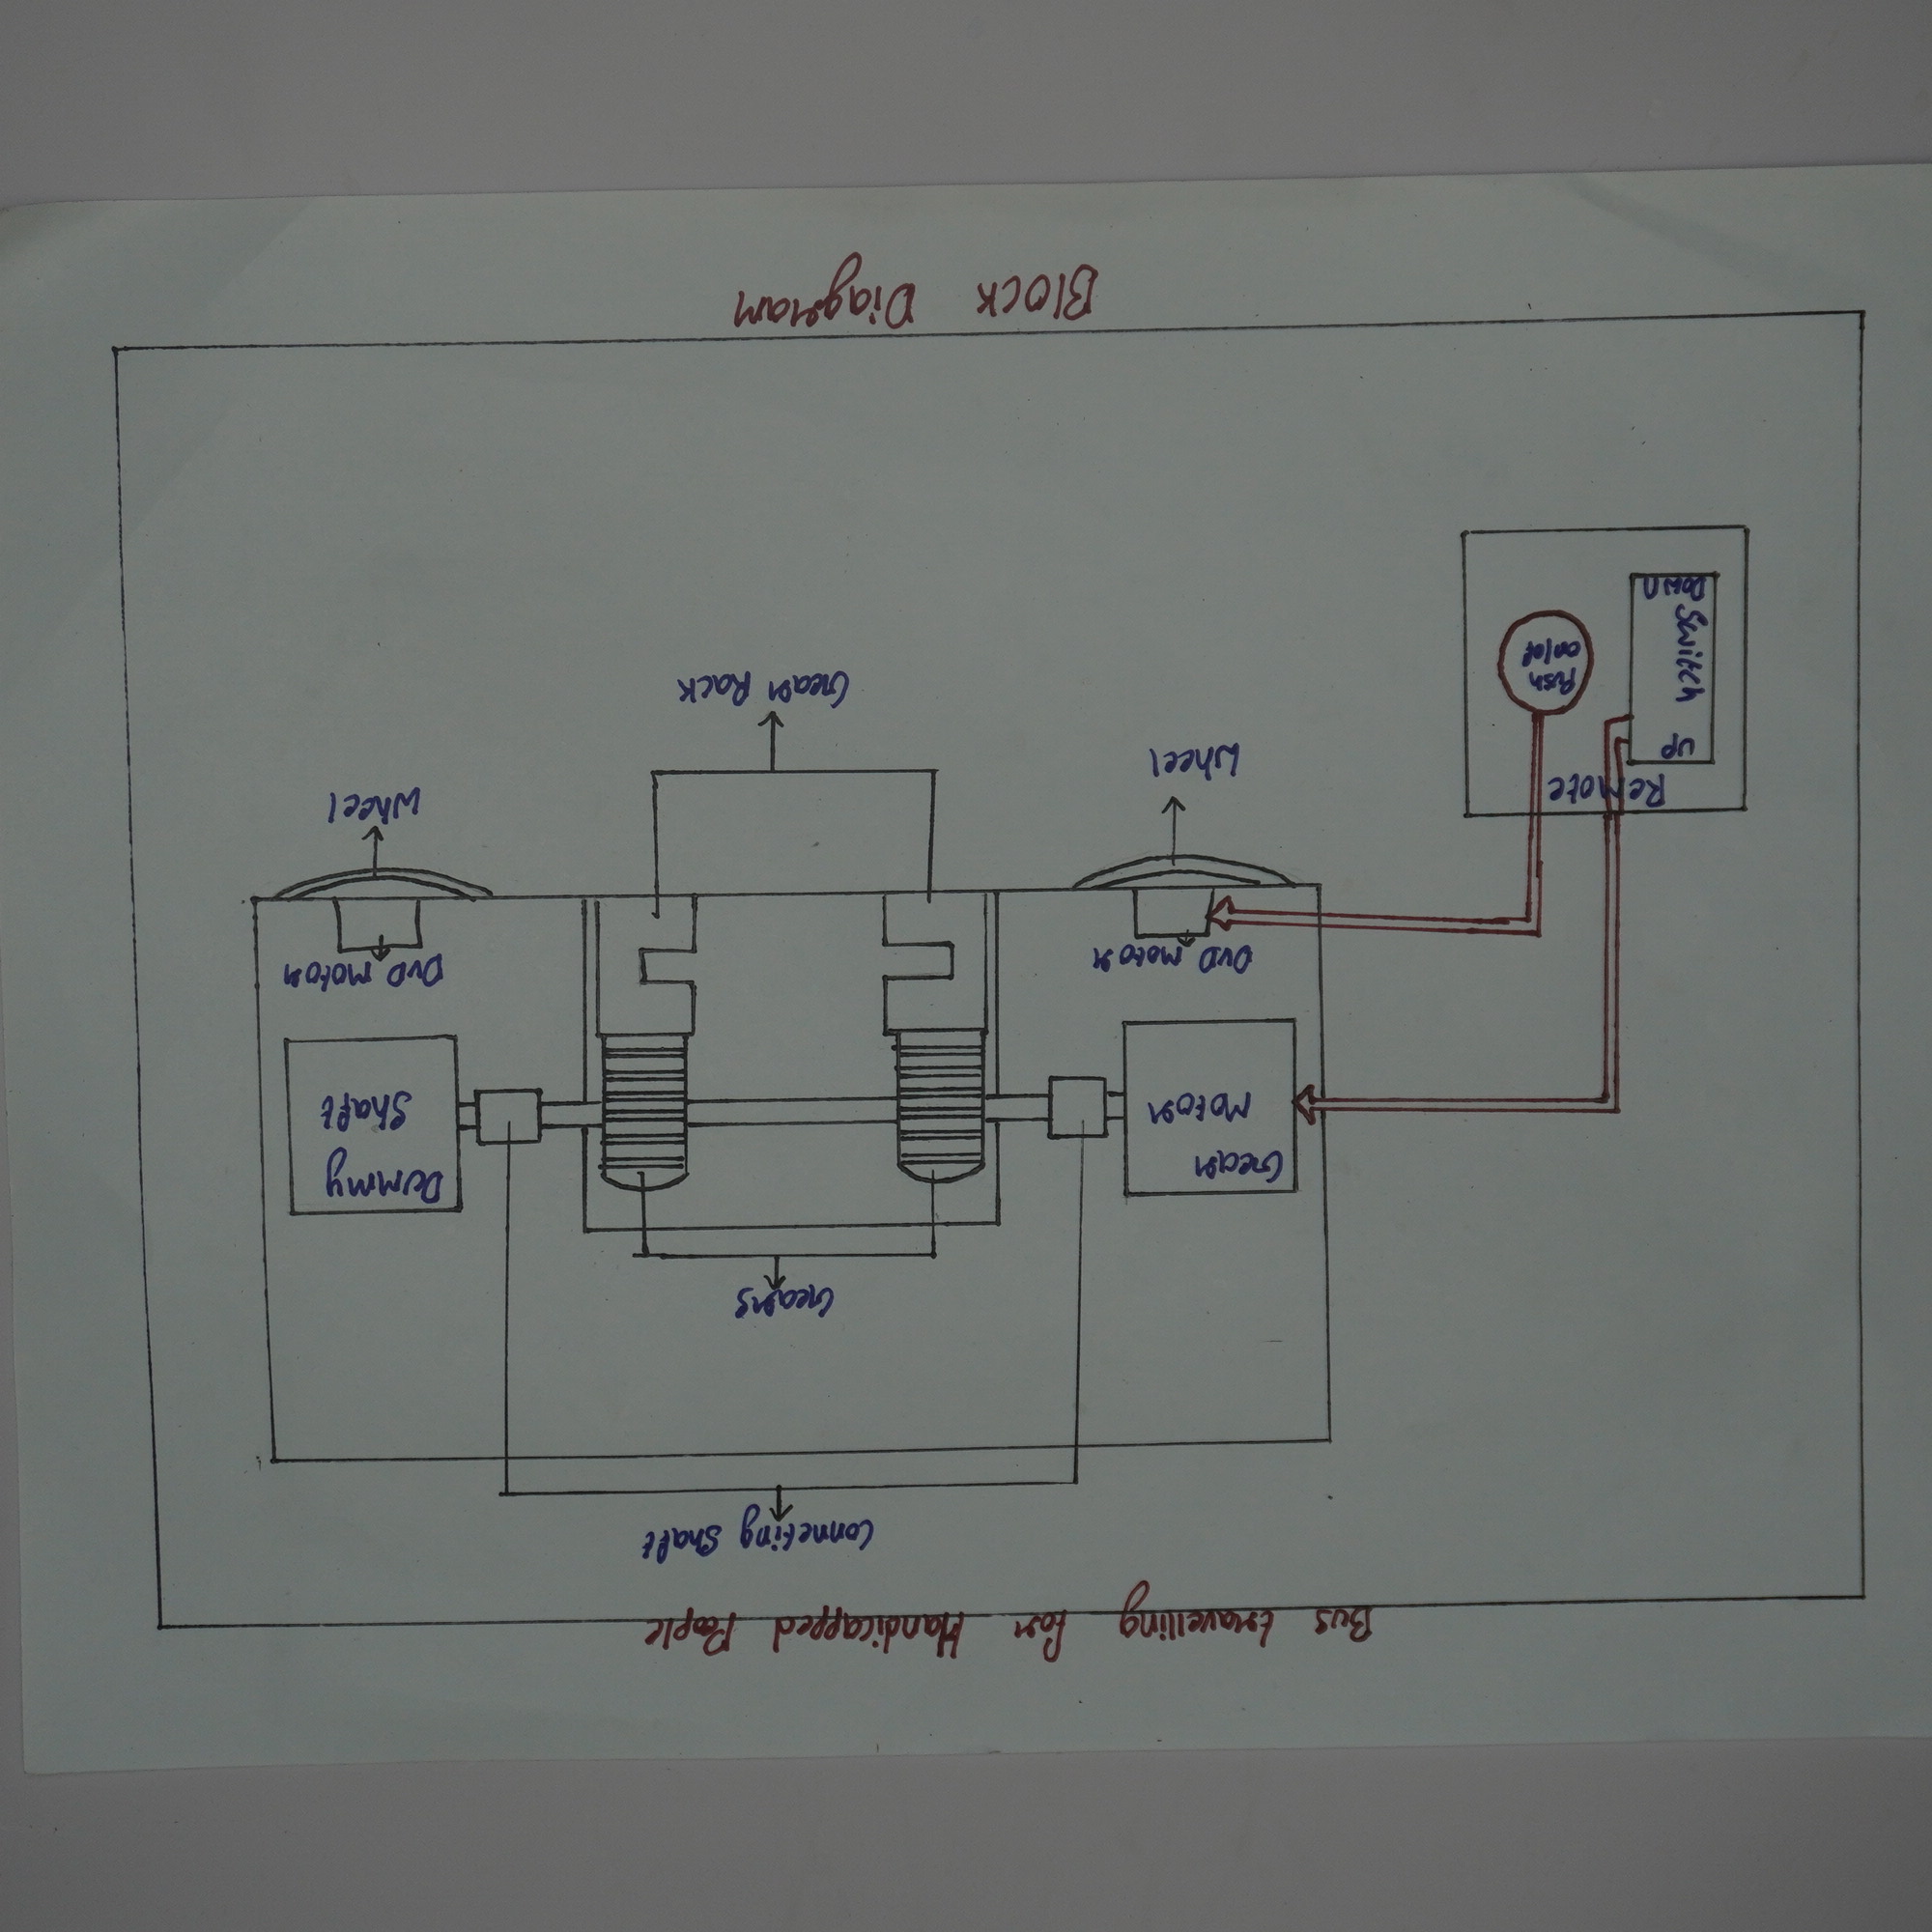 Bus travelling for Handicapped People
Conneting Shaft
Gears
Gear
Motor
Dummy
Shaft
DVD motor
DVD motor
Wheel
Wheel
Gear Rack
Remote
UP
Switch
Down
Push
on/of
BLOCK Diagram